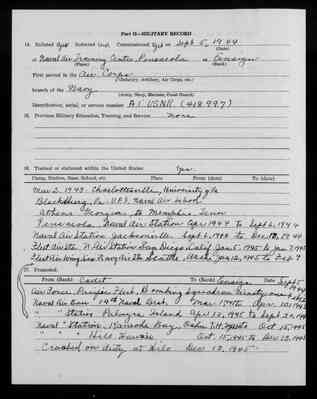 Part II—MILITARY RECORD
14. Enlisted yes Inducted Commissioned yes on Sept 5, 1944
(Date)
Naval Air Training Center Pensacola as Ensign
(Place) (Rank)
First served in the Air Corps
(Infantry, Artillery, Air Corps, etc.)
branch of the Navy
(Army, Navy, Marines, Coast Guard)
Identification, serial, or service number A1 USNR (418997)
15. Previous Military Education, Training, and Service. None
16. Trained or stationed within the United States: Yes
(Camp, Station, Base, School, etc. Place From (date) To (date)
1943. Charlottesville, University of Va
Blacksburg, Va. V.P.I. Naval Air School
Athens Georgia to Memphis Tenn
Pensacola Naval Air Station Apr 1944 to Sept 6, 1944
Naval Air Station Jacksonville Sept 6, 1944 to Dec 1944
N. Air Station San Diego Calif Jan 5, 1945 to Jan 7, 1945
Seattle, Wash. Jan 12, 1945 to Feb 9
17. Promoted.
From (Rank) Cadet To (Rank) Ensign Date Sept 5
1944
Air Force, Pacific Fleet, Bombing Squadron
Naval Air Base 14th Naval Dist. Mar 15th Apr. 10, 1945
" " Station Palmyra Island Apr 12, 1945 to Sept 20, 1945
Naval " Station, Kaneohe Bay, Oahu T.H. Oct 15, 1945
" " " Hilo Hawaii Oct 15, 1945 to Dec 13, 1945
Crashed on duty at Hilo Dec 13, 1945